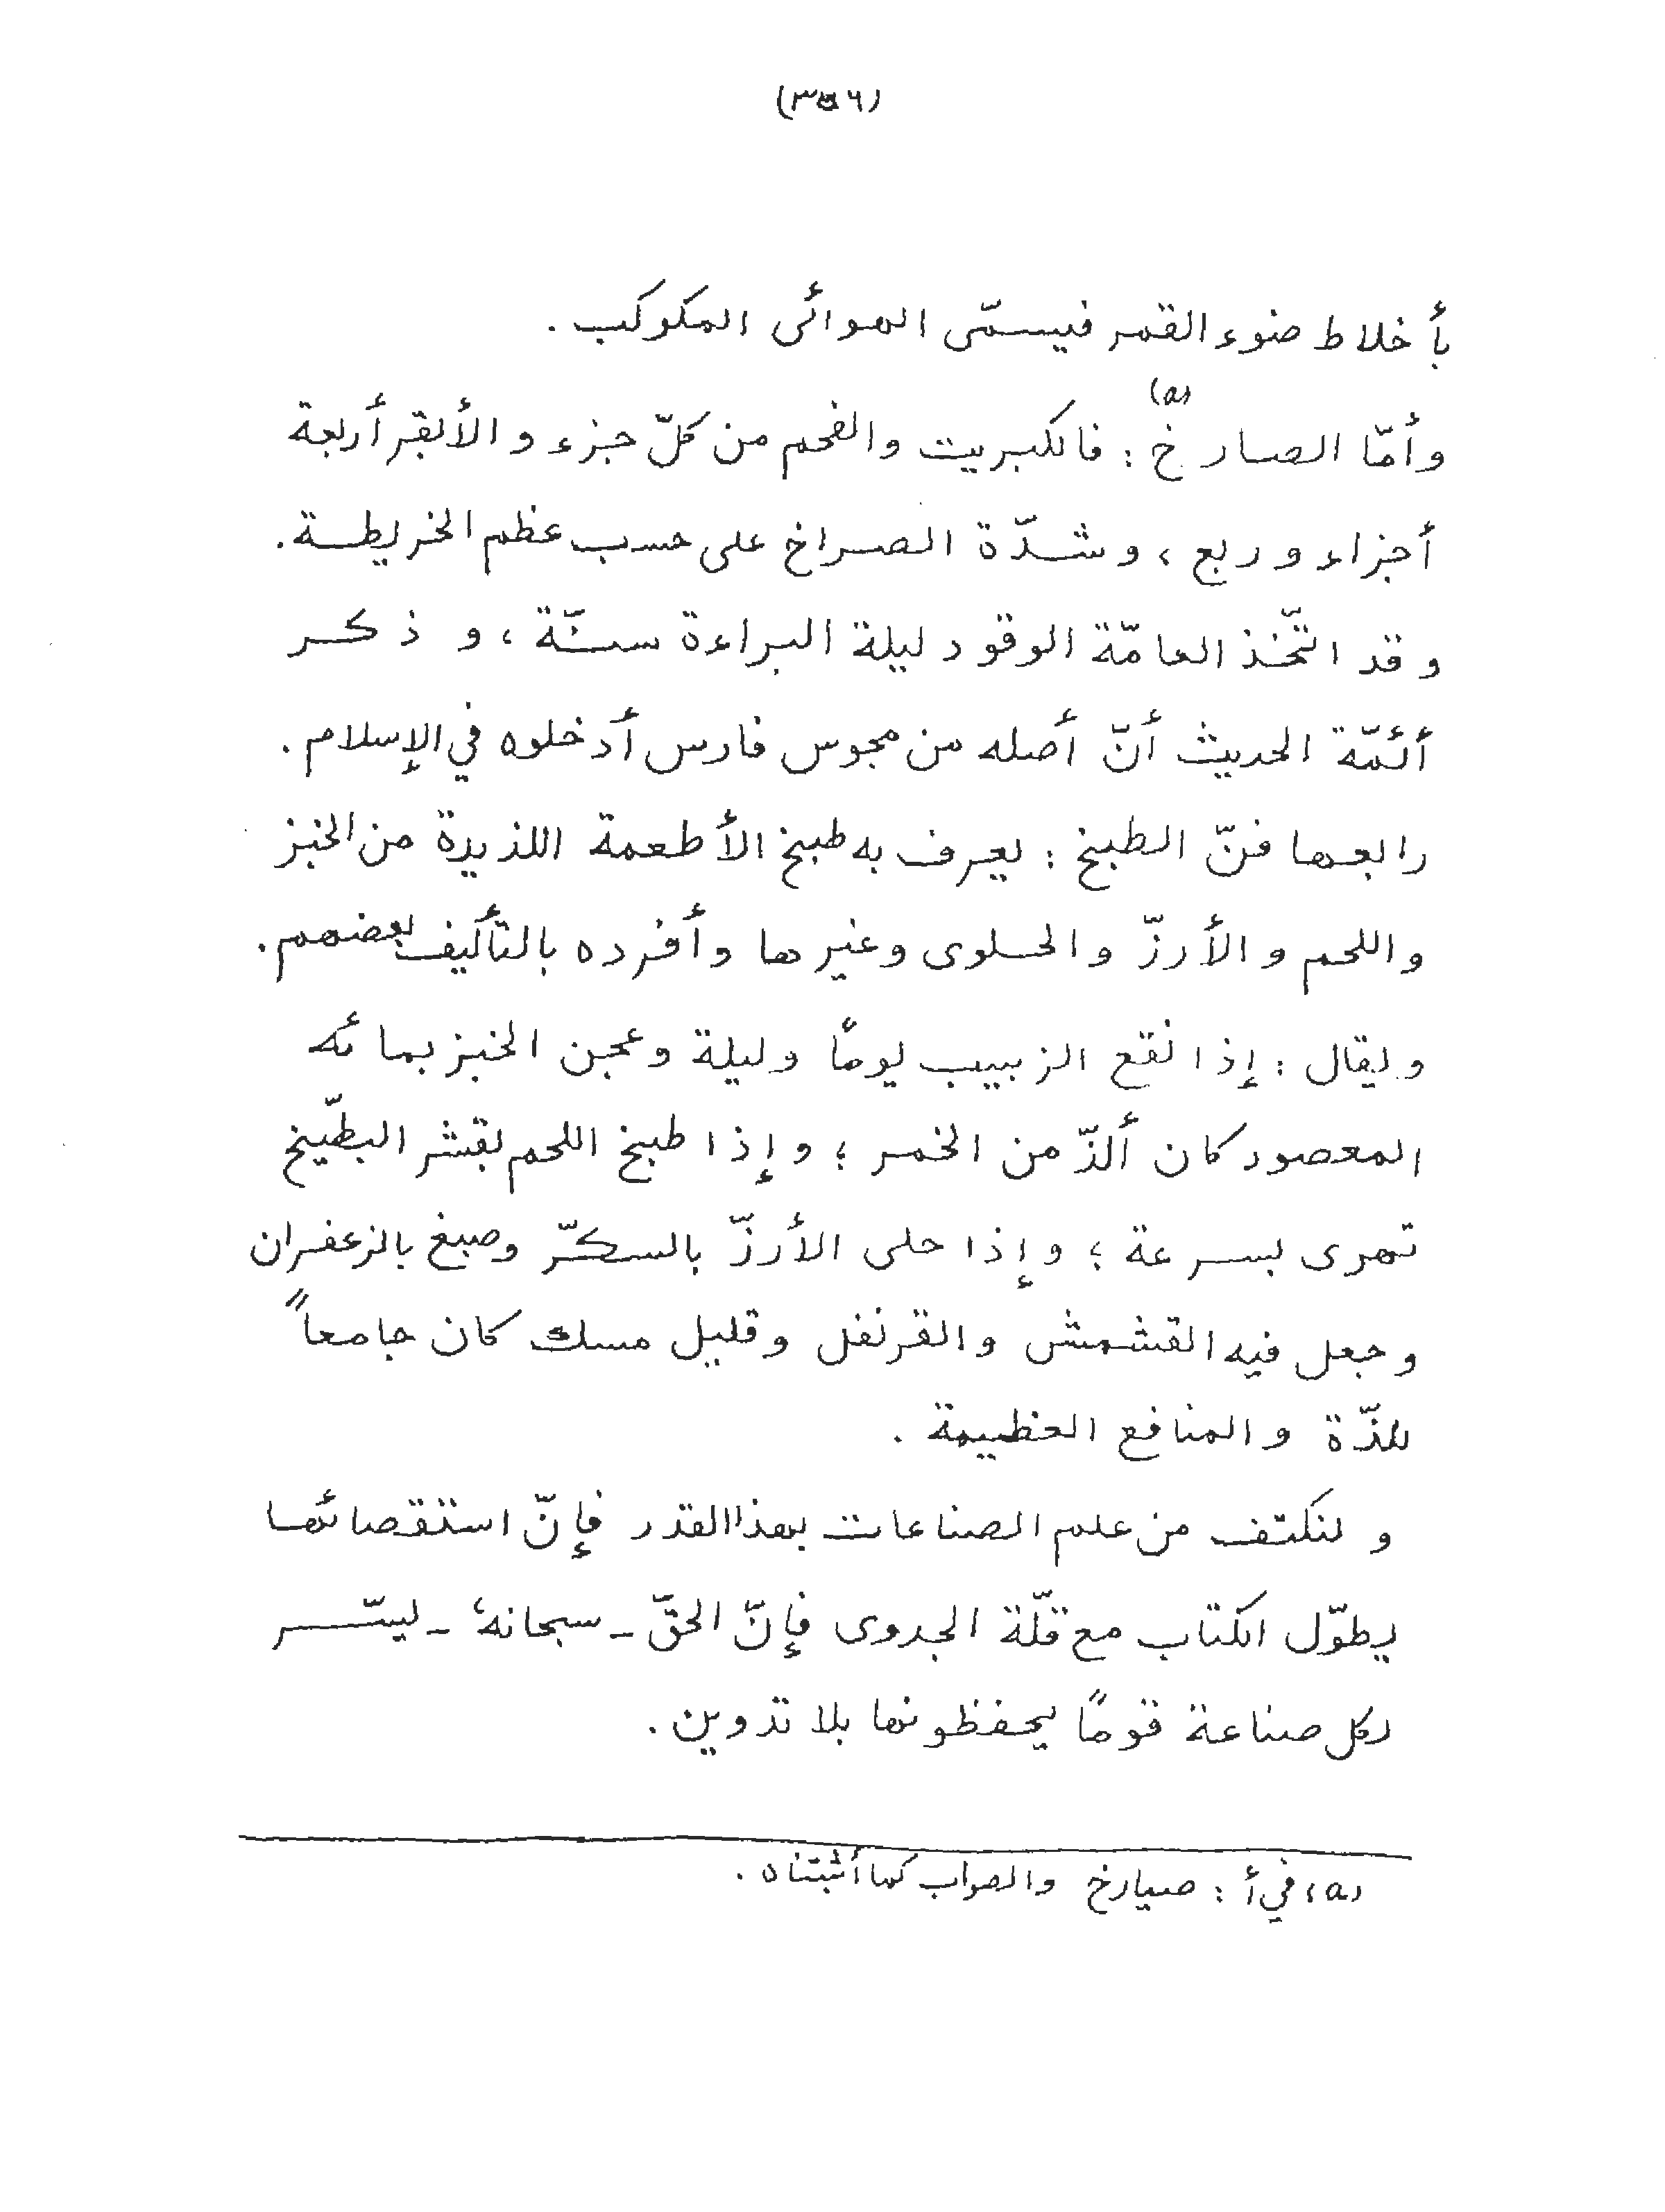 (٣٥٦)
بأخلاط ضوء القمر فيسمّى الهوائى المكوكب .
وأمّا الصارخ(a) : فالكبريت والفحم من كلّ جزء والأبقر أربعة
أجزاء وربع ، وشدّة الصراخ على حسب عظم الخريطة .
وقد اتّخذ العامّة الوقود ليلة البراءة سنّة ، وذكر
أئمّة الحديث أنّ أصله من مجوس فارس أدخلوه في الإسلام .
رابعها فنّ الطبخ : يعرف به طبخ الأطعمة اللذيدة من الخبز
واللحم والأرزّ والحلوى وغيرها وأفرده بالتأليف بعضهم .
ويقال : إذا نقع الزبيب يومًا وليلة وعجن الخبز بمائه
المعصور كان ألذّ من الخمر ؛ وإذا طبخ اللحم بقشر البطّيخ
تهرى بسرعة ؛ وإذا حلى الأرزّ بالسكّر وصبغ بالزعفران
وجعل فيه القشمش والقرنفل وقليل مسك كان جامعاً
للذّة والمنافع العظيمة .
ولنكتف من علم الصناعات بهذا القدر فإنّ استقصائها
يطوّل الكتاب مع قلّة الجدوى فإنّ الحقّ - سبحانه - ليسّر
لكل صناعة قومًا يحفظونها بلا تدوين .
(a) في أ : صيارخ والصواب كما أثبتناه .